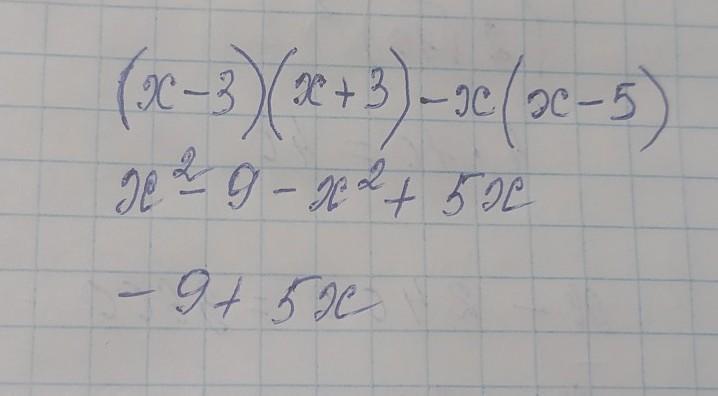 (x-3)(x+3)-x(x-5)
x²-9-x²+5x
-9+5x